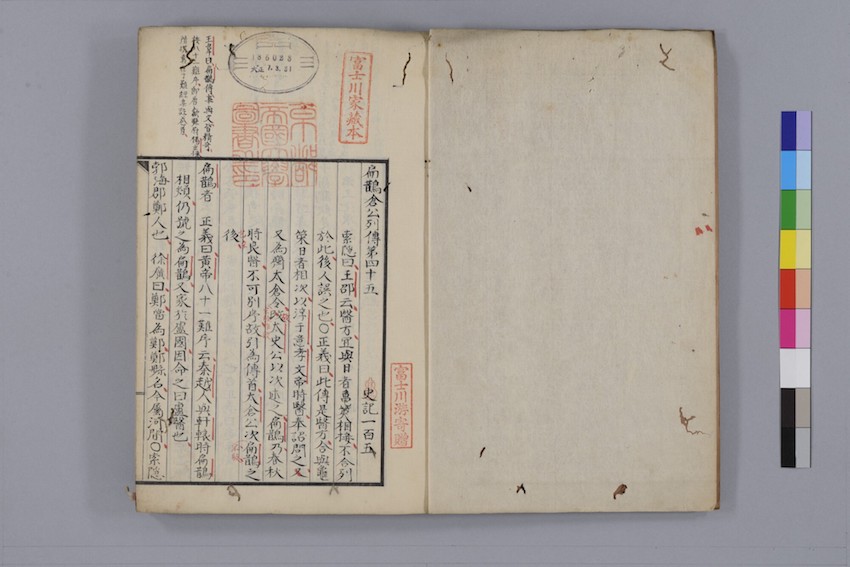 富士川家藏本
京都
帝國大學
圖書之印
186028
大正7.3.31
扁鵲倉公列傳第四十五
史記一百五
索隱曰王劭云醫方宜與日者龜筴相接不合列
於此後人誤之也〇正義曰此傳是醫方合與龜
策日者相次以淳于意孝文帝時醫奉詔問之又
又為齊太倉令故太史公以次述之扁鵲乃春秋
時良醫不可別序故引為傳首太倉公次扁鵲之
後
扁鵲者　正義曰黃帝八十一難序云秦越人與軒轅時扁鵲
相類仍號之為扁鵲又家於盧國因命之曰盧醫也
郭海郡鄭人也　徐廣曰鄭當為鄚鄚縣名今屬河間〇索隱
富士川游寄贈